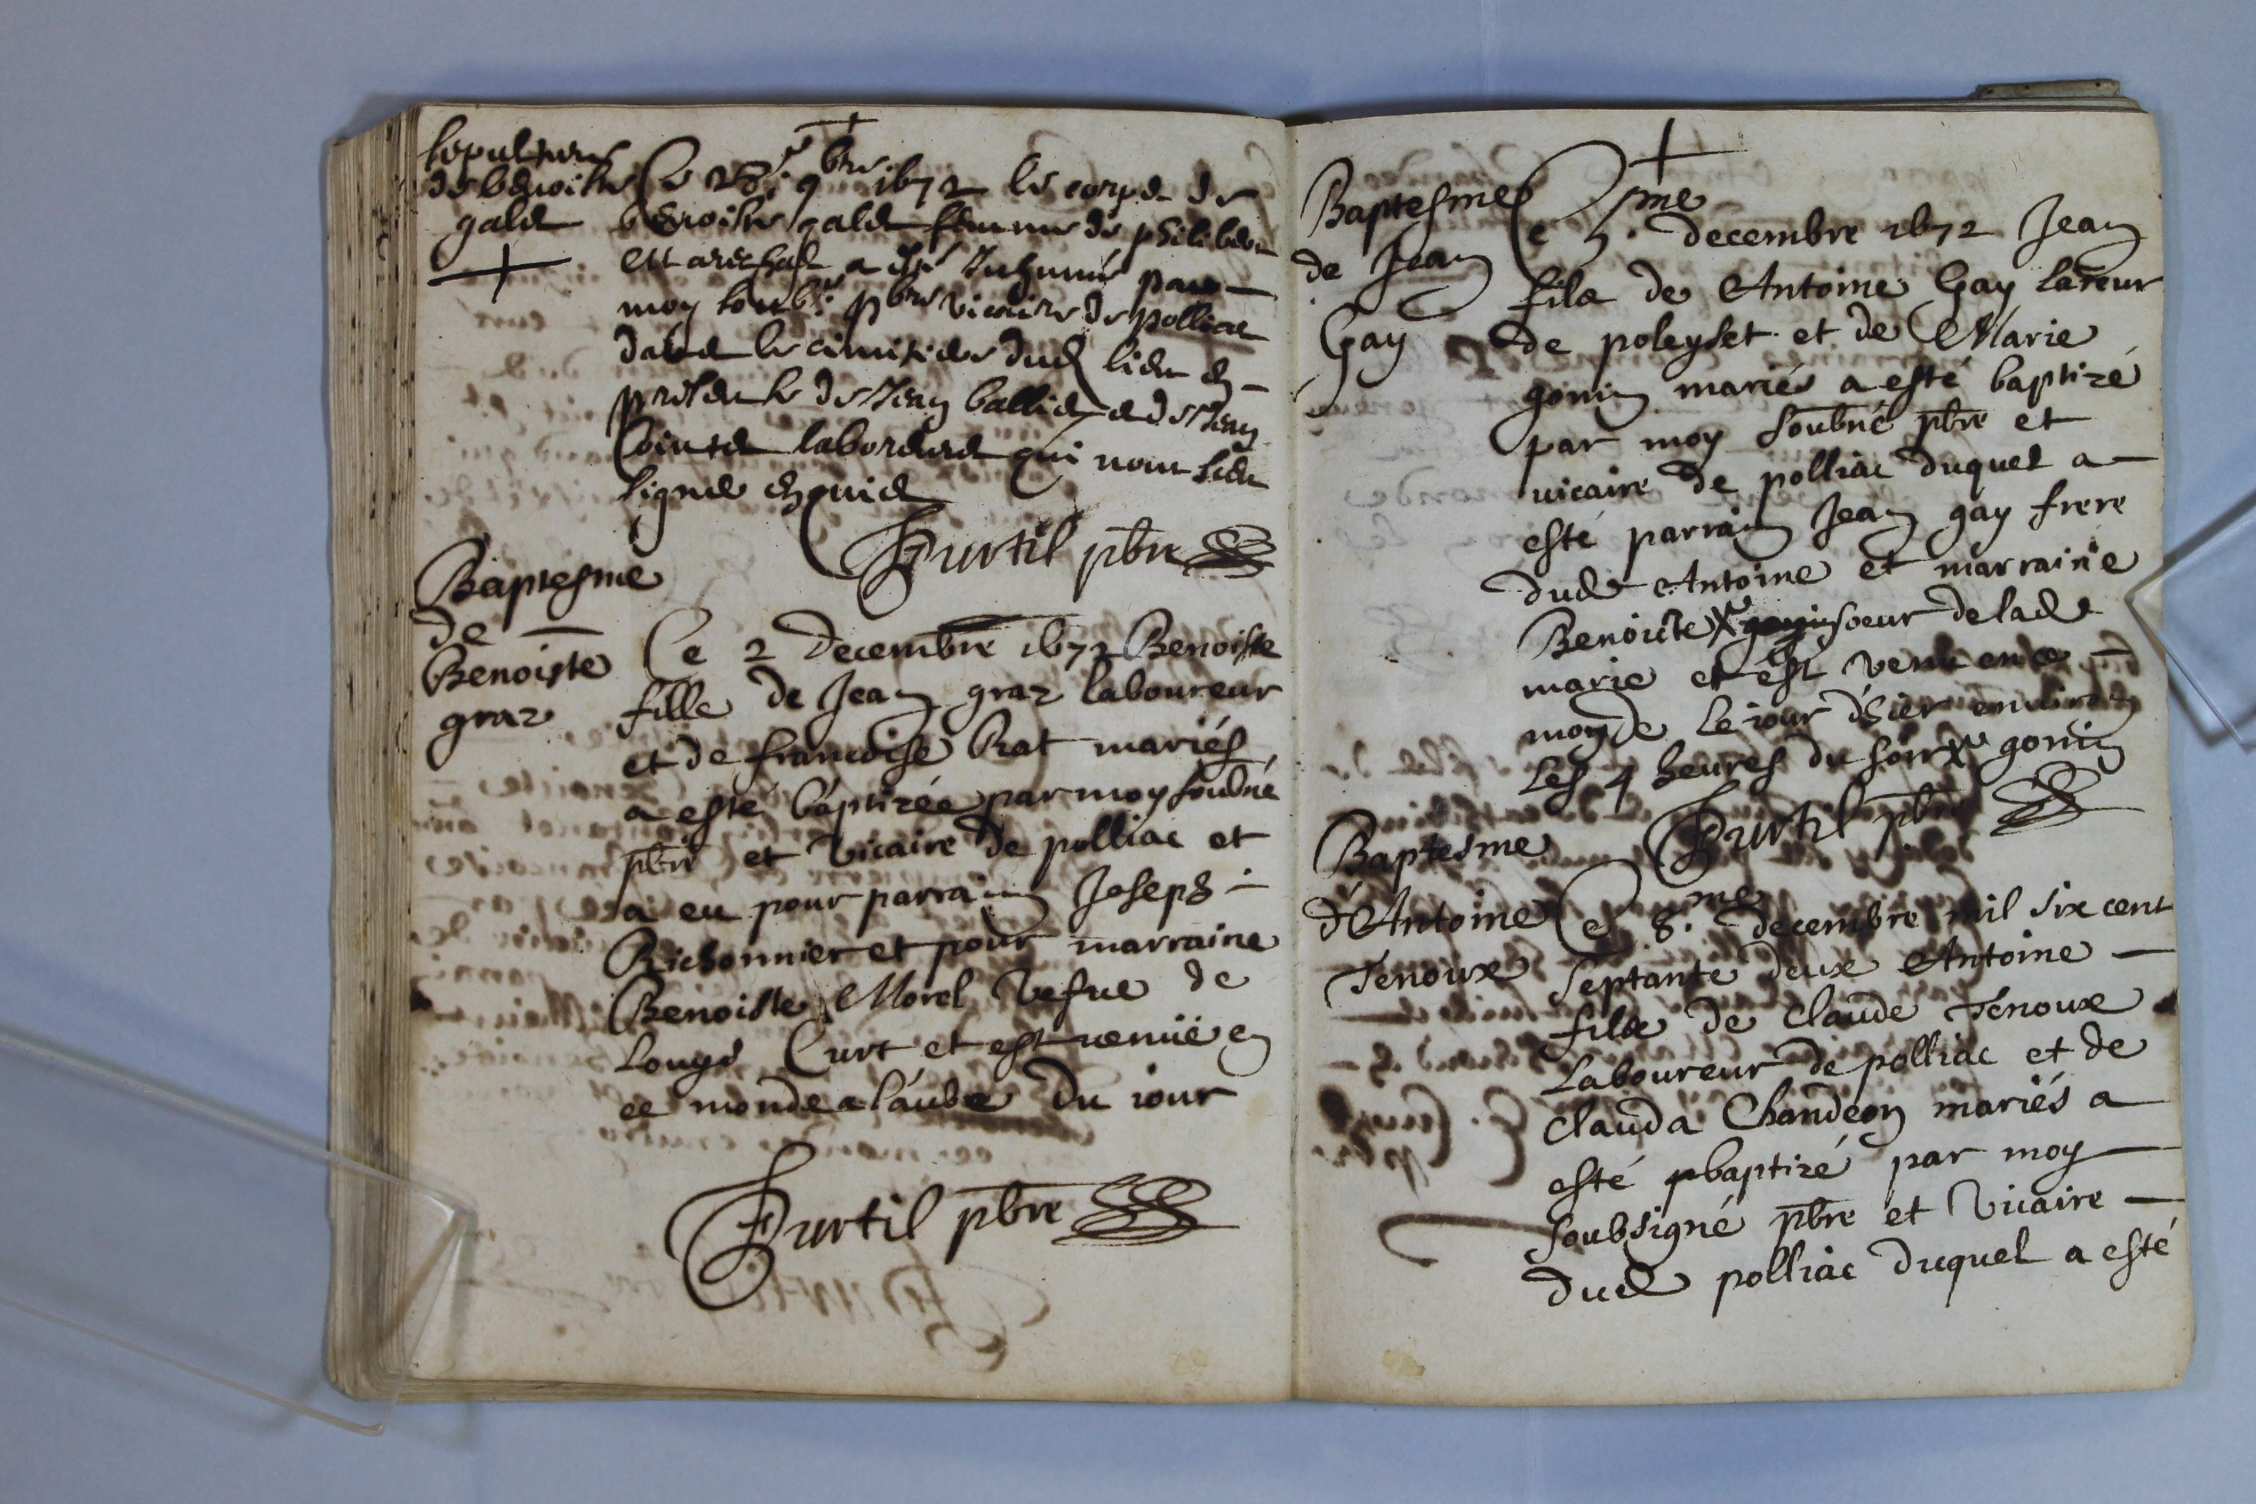 sepulture
de benoiste
galet
Ce 28e 9bre 1672 le corps de
benoiste galet femme de philibert
Marechal a esté Inhumé par
moy soubné pbre vicaire de polliac
dans le cimitiere dud lieu en
presence de Jean balliet et de Jean
Cointet laboreurs qui n'ont sceu
signer enquis
Purtil pbre
Baptesme
de
Benoiste
graz
Ce 2 decembre 1672 Benoiste
fille de Jean graz laboureur
et de francoise Rat mariés
a esté baptizée par moy soubné
pbre et Vicaire de polliac et
a eu pour parrain Joseph
Richonnier et pour marraine
Benoiste Morel vefve de
Louys Curt et est venüe en
ce monde a l'aube du iour
Purtil pbre
Baptesme
de Jean
Gay
Ce 5.me decembre 1672 Jean
fils de Antoine Gay labeur
de poleyset et de Marie
gonin mariés a esté baptizé
par moy soubné pbre et
vicaire de polliac duquel a
esté parrain Jean gay frere
dud Antoine et marraine
Benoicte X soeur de lad
marie et est venu en ce
monde le iour d'hier environ
les 4 heures du soir X gonin
Purtil pbre
Baptesme
d'Antoine
Tenoux
Ce 8.me decembre mil six cent
septante deux Antoine
fils de Claude Tenoux
Laboureur de polliac et de
Clauda Chandeon mariés a
esté baptizé par moy
soubsigné pbre et Vicaire
dud polliac duquel a esté